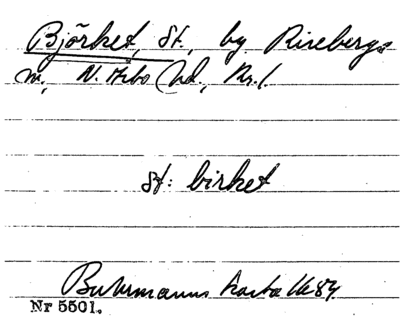 Björket, St., by Riseberga
sn, N. Åsbo hd, Kr. l.
St: birket
Buhrmanns karta 1684
Nr 5501.